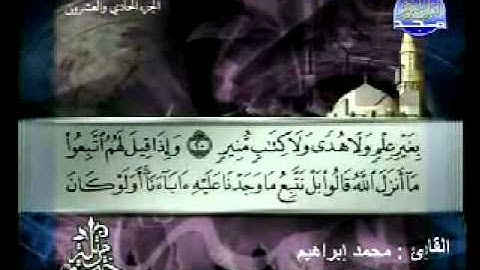 الجزء الحادي والعشرون
المجد
بِغَيْرِ عِلْمٍ وَلَا هُدًى وَلَا كِتَٰبٍ مُّنِيرٍ ۝٢٠ وَإِذَا قِيلَ لَهُمُ ٱتَّبِعُوا۟
مَآ أَنزَلَ ٱللَّهُ قَالُوا۟ بَلْ نَتَّبِعُ مَا وَجَدْنَا عَلَيْهِ ءَابَآءَنَآ أَوَلَوْ كَانَ
القارئ : محمد إبراهيم